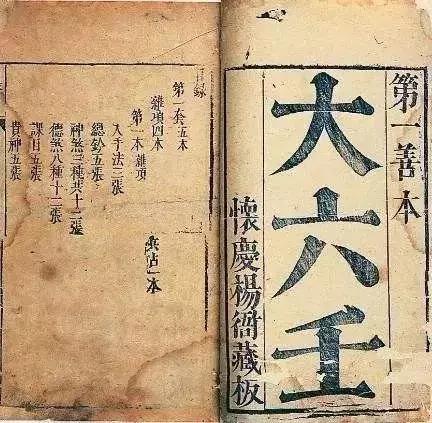 第一善本
大六壬
懷慶楊衙藏板
目録
第一套五本
雜項四本 兵占一本
第一本雜項
入手法三張
總鈐五張
神煞三種共十二張
德煞八種十二張
課目五張
貴神五張